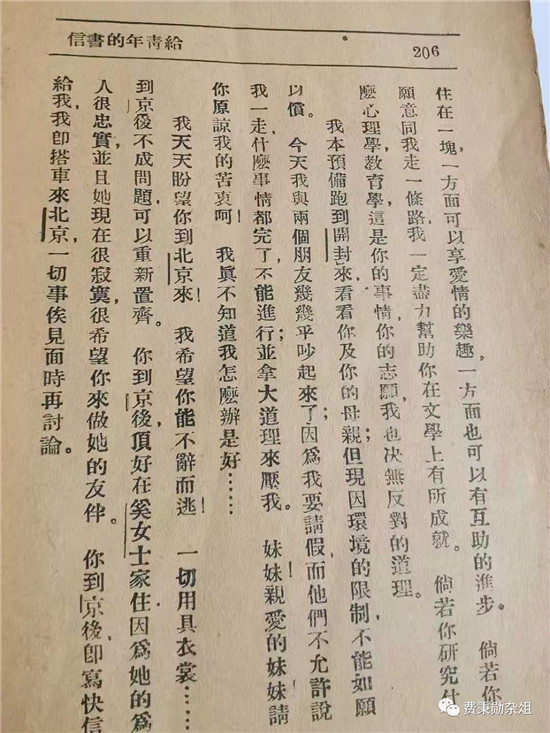 給青年的書信
206
住在一塊，一方面可以享愛情的樂趣，一方面也可以有互助的進步。　倘若你
願意同我走一條路，我一定盡力幫助你在文學上有所成就。　倘若你研究什
麽心理學，教育學，這是你的事情，你的志願，我也决無反對的道理。
我本預備跑到開封來，看看你及你的母親；但現因環境的限制，不能如願
以償。　今天我與兩個朋友幾幾乎吵起來了；因爲我要請假，而他們不允許，說
我一走，什麽事情都完了，不能進行；並拿大道理來壓我。　妹妹！親愛的妹妹！請
你原諒我的苦衷呵！　我眞不知道我怎麽辦是好……
我天天盼望你到北京來！　我希望你能不辭而逃！　一切用具衣裳……
到京後不成問題，可以重新置齊。　你到京後，頂好在奚女士家住，因爲她的爲
人很忠實，並且她現在很寂寞，很希望你來做她的友伴。　你到京後，卽寫快信
給我，我卽搭車來北京，一切事俟見面時再討論。
费秉勋杂俎